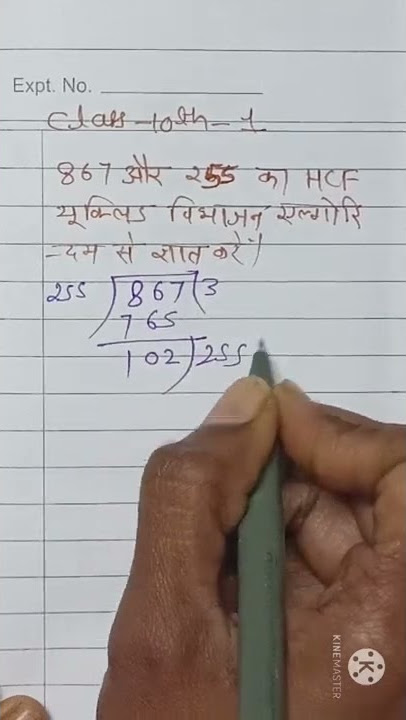 Expt. No.
Class-10th-1
867 और 255 का HCF
यूक्लिड विभाजन एल्गोरि
-दम से ज्ञात करें।
255 ) 867 ( 3
765
102 ) 255
KINEMASTER